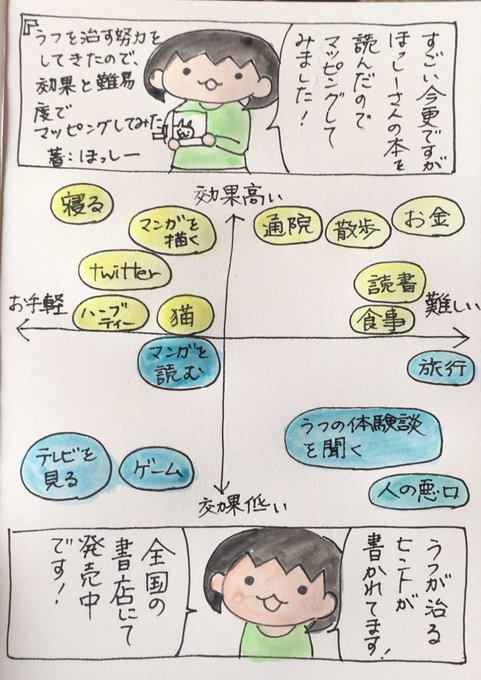 すごい今更ですが
ほっしーさんの本を
読んだので
マッピングして
みました!
『うつを治す努力を
してきたので、
効果と難易
度で
マッピングしてみた』
著:ほっしー
効果高い
寝る
マンガを
描く
twitter
ハーブ
ティー
猫
通院
散歩
お金
読書
食事
お手軽
難しい
マンガを
読む
旅行
うつの体験談
を聞く
テレビを
見る
ゲーム
人の悪口
効果低い
うつが治る
ヒントが
書かれてます!
全国の
書店にて
発売中
です!